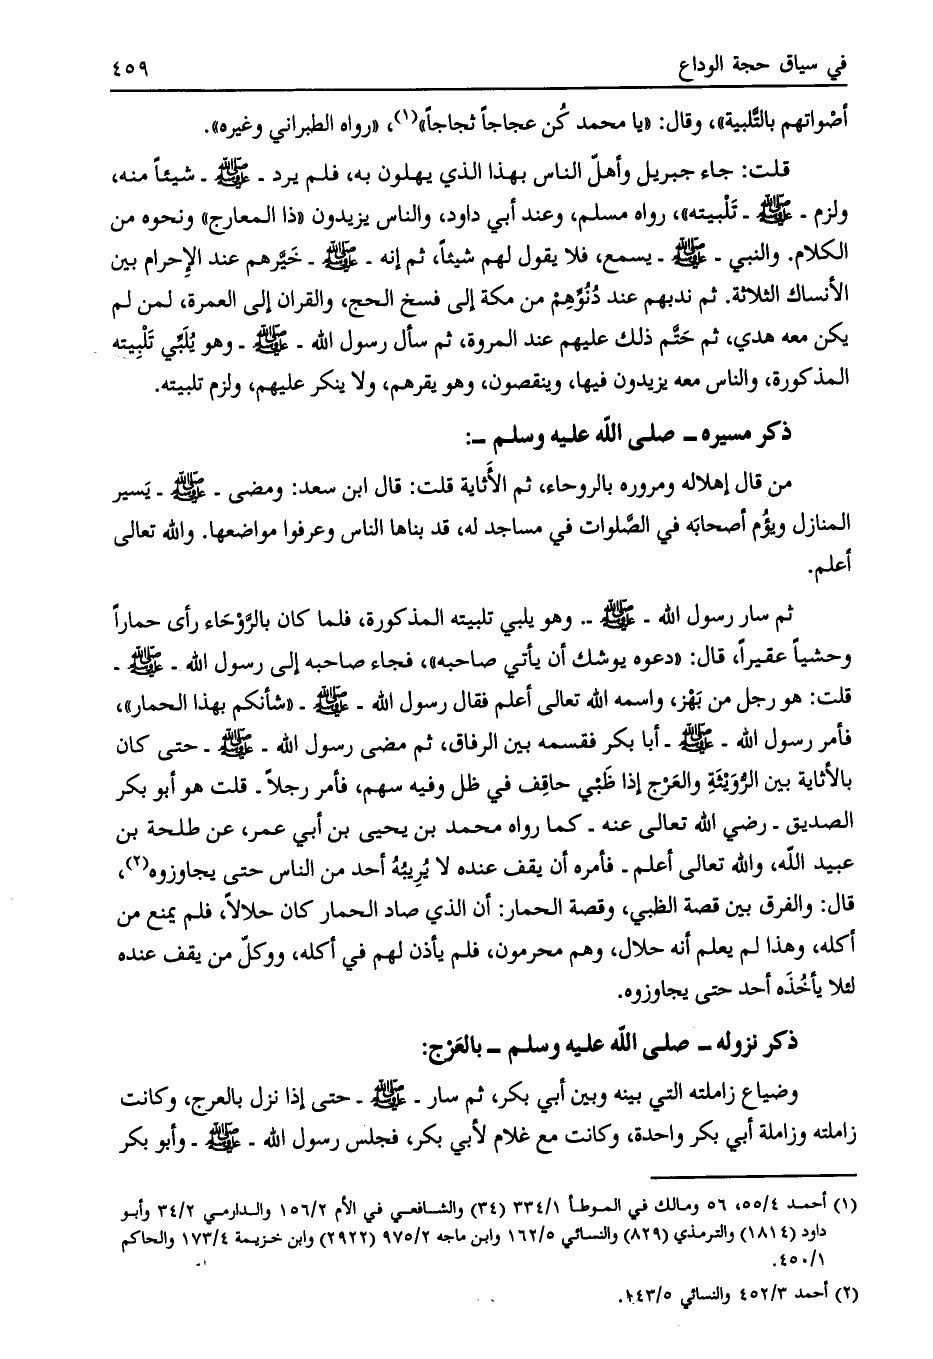 في سياق حجة الوداع ٤٥٩
أصْواتهم بالتَّلبية»، وقال: «يا محمد كُن عجاجاً ثجاجاً»(١)، «رواه الطبراني وغيره».
قلت: جاء جبريل وأهلّ الناس بهذا الذي يهلون به، فلم يرد ـ ﷺ ـ شيئاً منه،
ولزم ـ ﷺ ـ تَلْبيته»، رواه مسلم، وعند أبي داود، والناس يزيدون «ذا المعارج» ونحوه من
الكلام. والنبي ـ ﷺ ـ يسمع، فلا يقول لهم شيئاً، ثم إنه ـ ﷺ ـ خَيَّرهم عند الإحرام بين
الأنساك الثلاثة. ثم ندبهم عند دُنُوِّهِمْ من مكة إلى فسخ الحج، والقران إلى العمرة، لمن لم
يكن معه هدي، ثم حَتَّم ذلك عليهم عند المروة، ثم سأل رسول الله ـ ﷺ ـ وهو يُلَبِّي تَلْبِيته
المذكورة، والناس معه يزيدون فيها، وينقصون، وهو يقرهم، ولا ينكر عليهم، ولزم تلبيته.
ذكر مسيره ـ صلى اللّه عليه وسلم ـ:
من قال إهلاله ومروره بالروحاء، ثم الأَثاية قلت: قال ابن سعد: ومضى ـ ﷺ ـ يَسير
المنازل ويؤُم أصحابَه في الصَّلوات في مساجد له، قد بناها الناس وعرفوا مواضعها. والله تعالى
أعلم.
ثم سار رسول الله ـ ﷺ ـ. وهو يلبي تلبيته المذكورة، فلما كان بالرَّوْحَاء رأى حماراً
وحشياً عقيراً، قال: «دعوه يوشك أن يأتي صاحبه»، فجاء صاحبه إلى رسول الله ـ ﷺ ـ
قلت: هو رجل من بَهْز، واسمه الله تعالى أعلم فقال رسول الله ـ ﷺ ـ «شأنكم بهذا الحمار»،
فأمر رسول الله ـ ﷺ ـ أبا بكر فقسمه بين الرفاق، ثم مضى رسول الله ـ ﷺ ـ حتى كان
بالأثاية بين الرُّوَيْثَةِ والعَرْج إذا ظَبْي حاقِف في ظل وفيه سهم، فأمر رجلاً ـ قلت هو أبو بكر
الصديق ـ رضي الله تعالى عنه ـ كما رواه محمد بن يحيى بن أبي عمر، عن طلحة بن
عبيد اللّه، والله تعالى أعلم ـ فأمره أن يقف عنده لا يُرِيبُهُ أحد من الناس حتى يجاوزوه(٢)،
قال: والفرق بين قصة الظبي، وقصة الحمار: أن الذي صاد الحمار كان حلالاً، فلم يمنع من
أكله، وهذا لم يعلم أنه حلال، وهم محرمون، فلم يأذن لهم في أكله، ووكلّ من يقف عنده
لئلا يأخُذَه أحد حتى يجاوزوه.
ذكر نزوله ـ صلى اللّه عليه وسلم ـ بالعَرْج:
وضياع زاملته التي بينه وبين أبي بكر، ثم سار ـ ﷺ ـ حتى إذا نزل بالعرج، وكانت
زاملته وزاملة أبي بكر واحدة، وكانت مع غلام لأبي بكر، فجلس رسول الله ـ ﷺ ـ وأبو بكر
(١) أحمد ٥٥/٤، ٥٦ ومالك في الموطأ ٣٣٤/١ (٣٤) والشافعي في الأم ١٥٦/٢ والدارمي ٣٤/٢ وأبو
داود (١٨١٤) والترمذي (٨٢٩) والنسائي ١٦٢/٥ وابن ماجه ٩٧٥/٢ (٢٩٢٢) وابن خزيمة ١٧٣/٤ والحاكم
٤٥٠/١.
(٢) أحمد ٤٥٢/٣ والنسائي ١٤٣/٥.